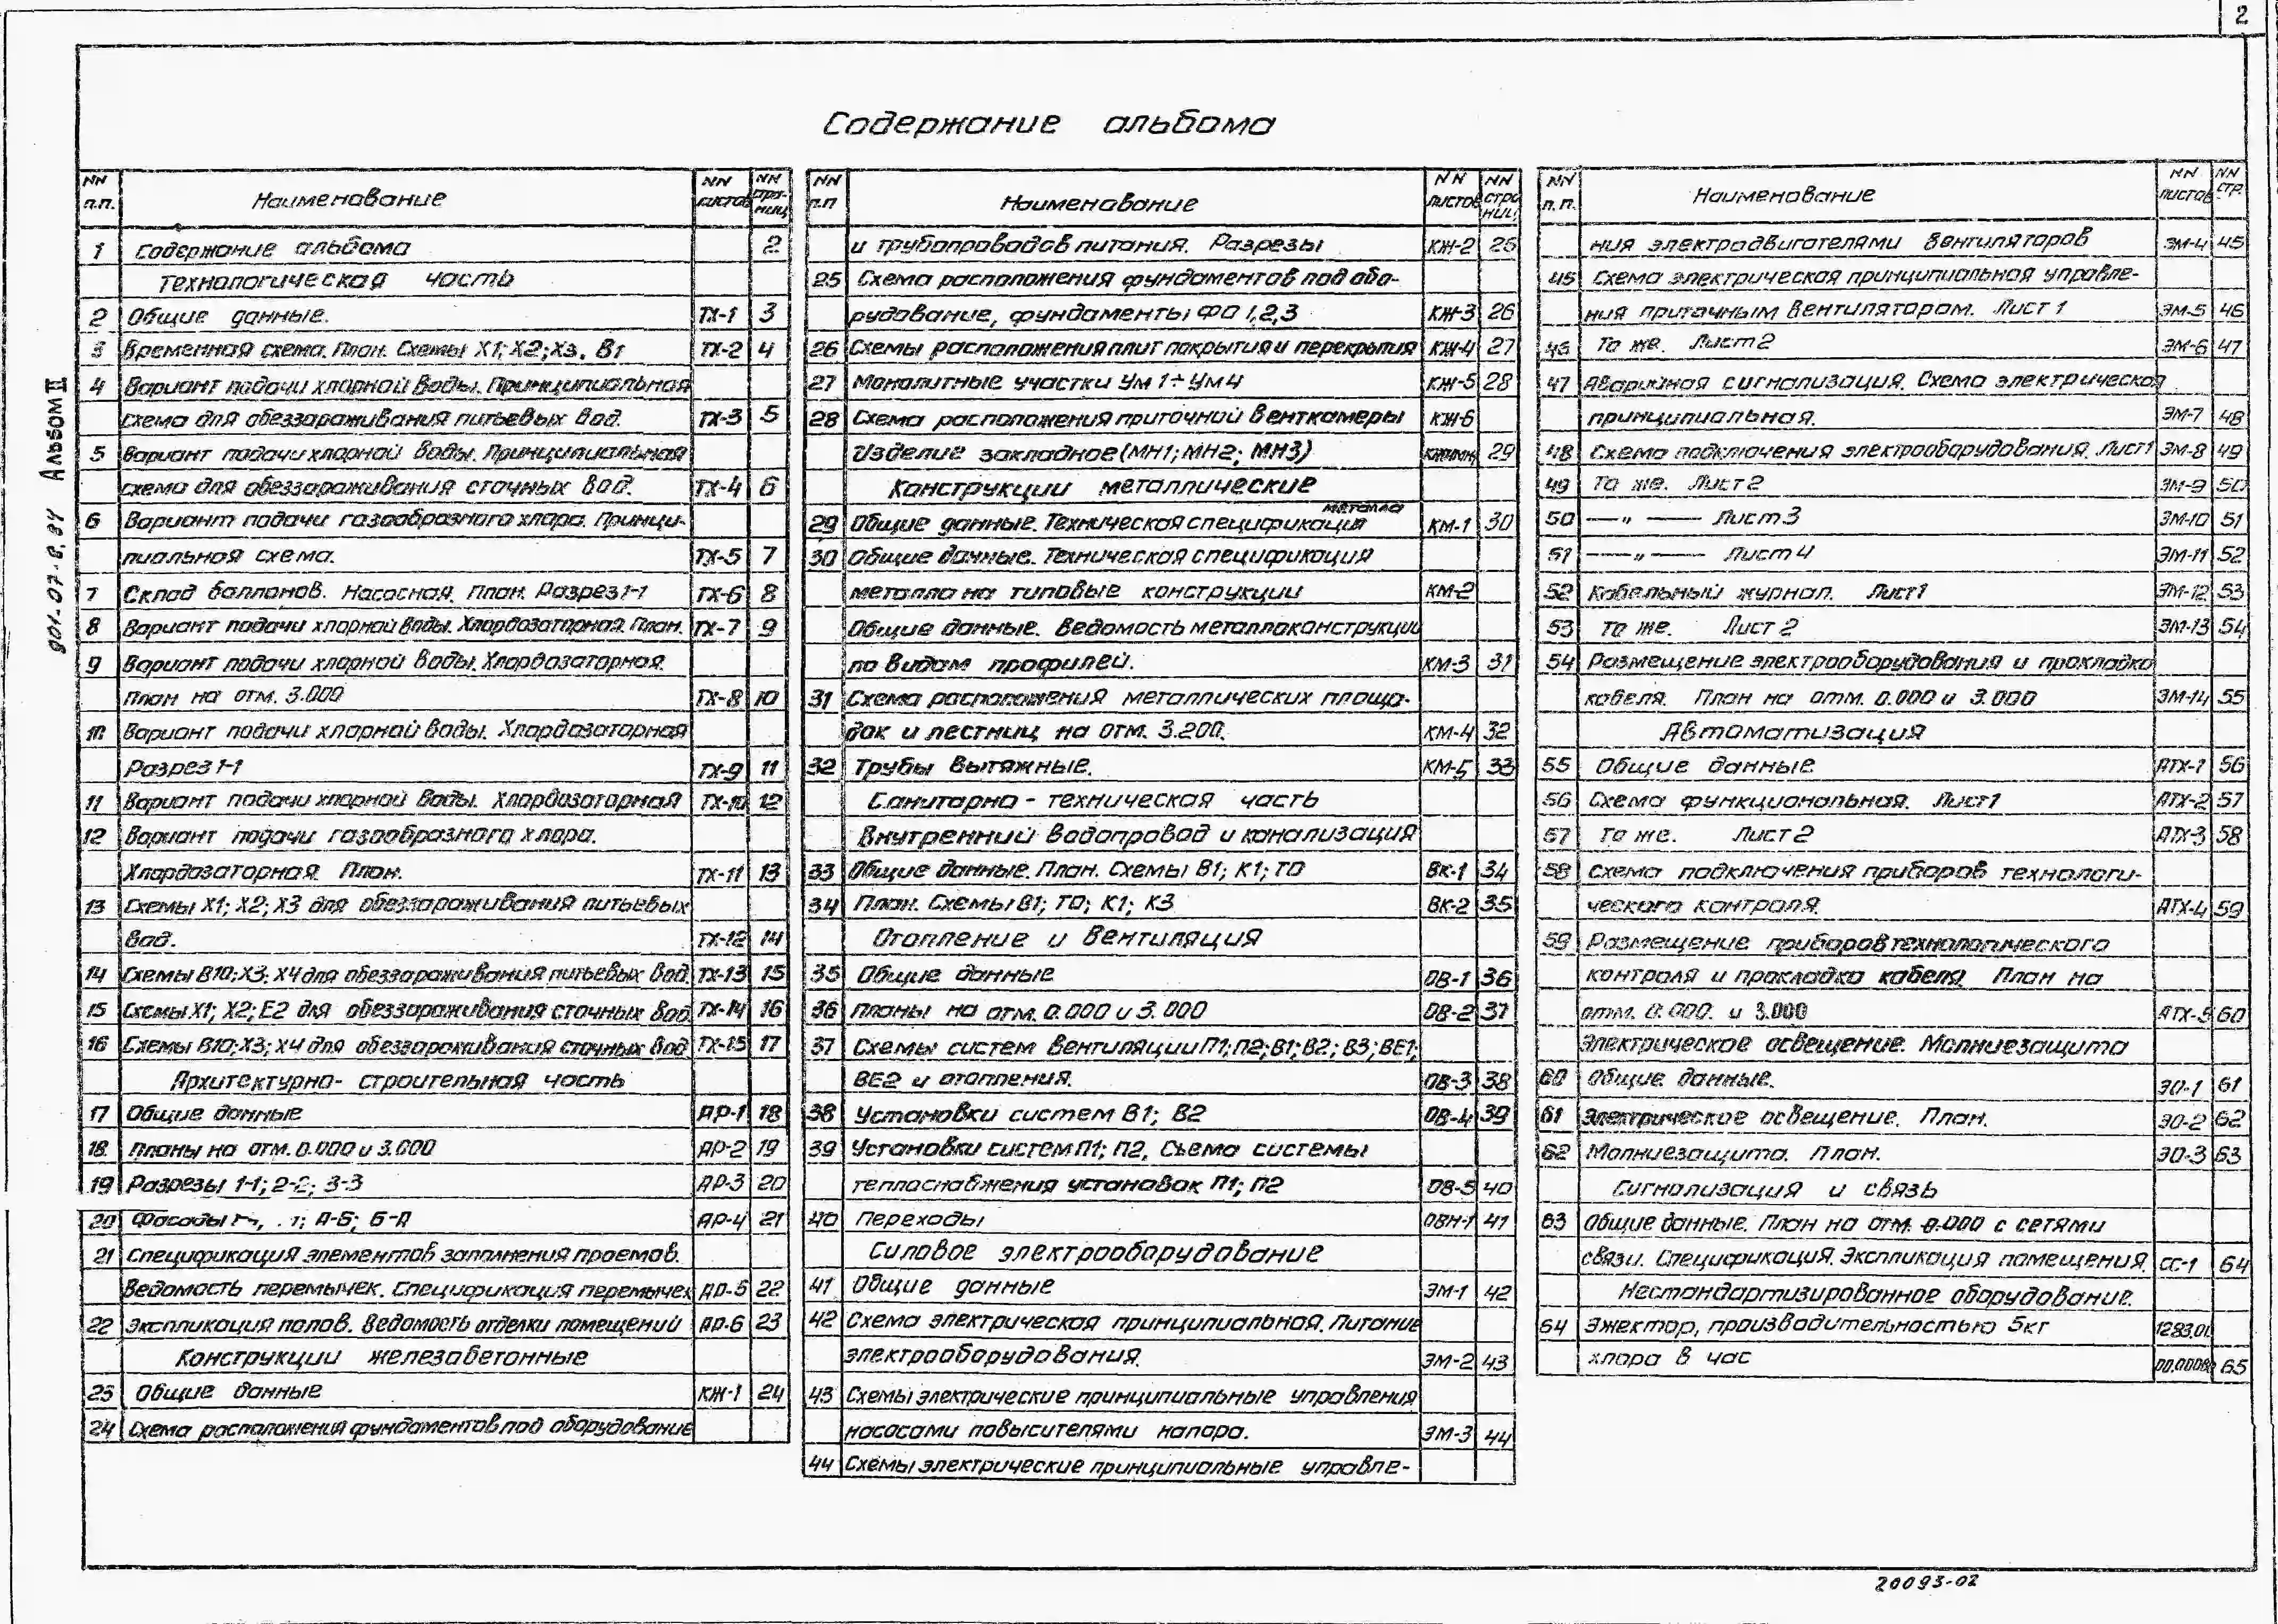 2
Содержание альбома
901-07-8.84 Альбом II
NN п.п. Наименование NN листов NN страниц
1 Содержание альбома 2
Технологическая часть
2 Общие данные. ТХ-1 3
3 Временная схема. План. Схемы Х1; Х2; Х3. В1 ТХ-2 4
4 Вариант подачи хлорной воды. Принципиальная
схема для обеззараживания питьевых вод. ТХ-3 5
5 Вариант подачи хлорной воды. Принципиальная
схема для обеззараживания сточных вод. ТХ-4 6
6 Вариант подачи газообразного хлора. Принци-
пиальная схема. ТХ-5 7
7 Склад баллонов. Насосная. План. Разрез 1-1 ТХ-6 8
8 Вариант подачи хлорной воды. Хлордозаторная. План. ТХ-7 9
9 Вариант подачи хлорной воды. Хлордозаторная.
План на отм. 3.000 ТХ-8 10
10 Вариант подачи хлорной воды. Хлордозаторная
Разрез 1-1 ТХ-9 11
11 Вариант подачи хлорной воды. Хлордозаторная ТХ-10 12
12 Вариант подачи газообразного хлора.
Хлордозаторная. План. ТХ-11 13
13 Схемы Х1; Х2; Х3 для обеззараживания питьевых
вод. ТХ-12 14
14 Схемы В10; Х3; Х4 для обеззараживания питьевых вод. ТХ-13 15
15 Схемы Х1; Х2; Е2 для обеззараживания сточных вод. ТХ-14 16
16 Схемы В10; Х3; Х4 для обеззараживания сточных вод ТХ-15 17
Архитектурно- строительная часть
17 Общие данные АР-1 18
18 Планы на отм. 0.000 и 3.000 АР-2 19
19 Разрезы 1-1; 2-2; 3-3 АР-3 20
20 Фасады А-Б; Б-А АР-4 21
21 Спецификация элементов заполнения проемов.
Ведомость перемычек. Спецификация перемычек АР-5 22
22 Экспликация полов. Ведомость отделки помещений АР-6 23
Конструкции железобетонные
23 Общие данные КЖ-1 24
24 Схема расположения фундаментов под оборудование
NN п.п Наименование NN листов NN страниц
и трубопроводов питания. Разрезы КЖ-2 25
25 Схема расположения фундаментов под обо-
рудование, фундаменты ФО 1,2,3 КЖ-3 26
26 Схемы расположения плит покрытия и перекрытия КЖ-4 27
27 Монолитные участки Ум 1÷Ум4 КЖ-5 28
28 Схема расположения приточной венткамеры КЖ-6
Изделие закладное (МН1; МН2; МН3) 29
Конструкции металлические
29 Общие данные. Техническая спецификация металла КМ-1 30
30 Общие данные. Техническая спецификация
металла на типовые конструкции КМ-2
Общие данные. Ведомость металлоконструкции
по видам профилей. КМ-3 31
31 Схема расположения металлических площа-
док и лестниц на отм. 3.200. КМ-4 32
32 Трубы вытяжные. КМ-5 33
Санитарно - техническая часть
Внутренний водопровод и канализация
33 Общие данные. План. Схемы В1; К1; Т0 ВК-1 34
34 План. Схемы В1; Т0; К1; К3 ВК-2 35
Отопление и вентиляция
35 Общие данные ОВ-1 36
36 Планы на отм. 0.000 и 3.000 ОВ-2 37
37 Схемы систем вентиляции П1; П2; В1; В2; В3; ВЕ1;
ВЕ2 и отопления. ОВ-3 38
38 Установки систем В1; В2 ОВ-4 39
39 Установки систем П1; П2, Схема системы
теплоснабжения установок П1; П2 ОВ-5 40
40 Переходы ОВН-1 41
Силовое электрооборудование
41 Общие данные ЭМ-1 42
42 Схема электрическая принципиальная. Питание
электрооборудования. ЭМ-2 43
43 Схемы электрические принципиальные управления
насосами повысителями напора. ЭМ-3 44
44 Схемы электрические принципиальные управле-
NN п.п. Наименование NN листов NN стр.
ния электродвигателями вентиляторов ЭМ-4 45
45 Схема электрическая принципиальная управле-
ния приточным вентилятором. Лист 1 ЭМ-5 46
46 То же. Лист 2 ЭМ-6 47
47 Аварийная сигнализация. Схема электрическая
принципиальная. ЭМ-7 48
48 Схема подключения электрооборудования. Лист1 ЭМ-8 49
49 То же. Лист 2 ЭМ-9 50
50 —„— Лист 3 ЭМ-10 51
51 —„— Лист 4 ЭМ-11 52
52 Кабельный журнал. Лист1 ЭМ-12 53
53 То же. Лист 2 ЭМ-13 54
54 Размещение электрооборудования и прокладка
кабеля. План на отм. 0.000 и 3.000 ЭМ-14 55
Автоматизация
55 Общие данные АТХ-1 56
56 Схема функциональная. Лист1 АТХ-2 57
57 То же. Лист 2 АТХ-3 58
58 Схема подключения приборов технологи-
ческого контроля. АТХ-4 59
59 Размещение приборов технологического
контроля и прокладка кабеля. План на
отм. 0.000. и 3.000 АТХ-5 60
Электрическое освещение. Молниезащита
60 Общие данные. ЭО-1 61
61 Электрическое освещение. План. ЭО-2 62
62 Молниезащита. План. ЭО-3 63
Сигнализация и связь
63 Общие данные. План на отм. 0.000 с сетями
связи. Спецификация. Экспликация помещения. СС-1 64
Нестандартизированное оборудование.
64 Эжектор, производительностью 5кг 1283.01
хлора в час 65
20093-02